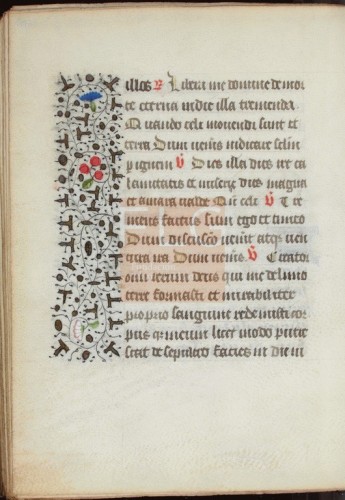 illos R Libera me domine de mor
te eterna in die illa tremenda
Quando celi movendi sunt et
terra Dum veneris iudicare selm
p ignem V Dies illa dies ire ca
lamitatis et miserie dies magna
et amara valde Qn celi V Tre
mens factus sum ego et timeo
Dum discussio venit atqz ven
tura ira Dum veneris V Creator
omnium rerum deus qui me de limo
terre formasti et mirabiliter
proprio sanguine redemisti cor
pus qz meum licet modo putre
scat de sepulcro facies in die iu